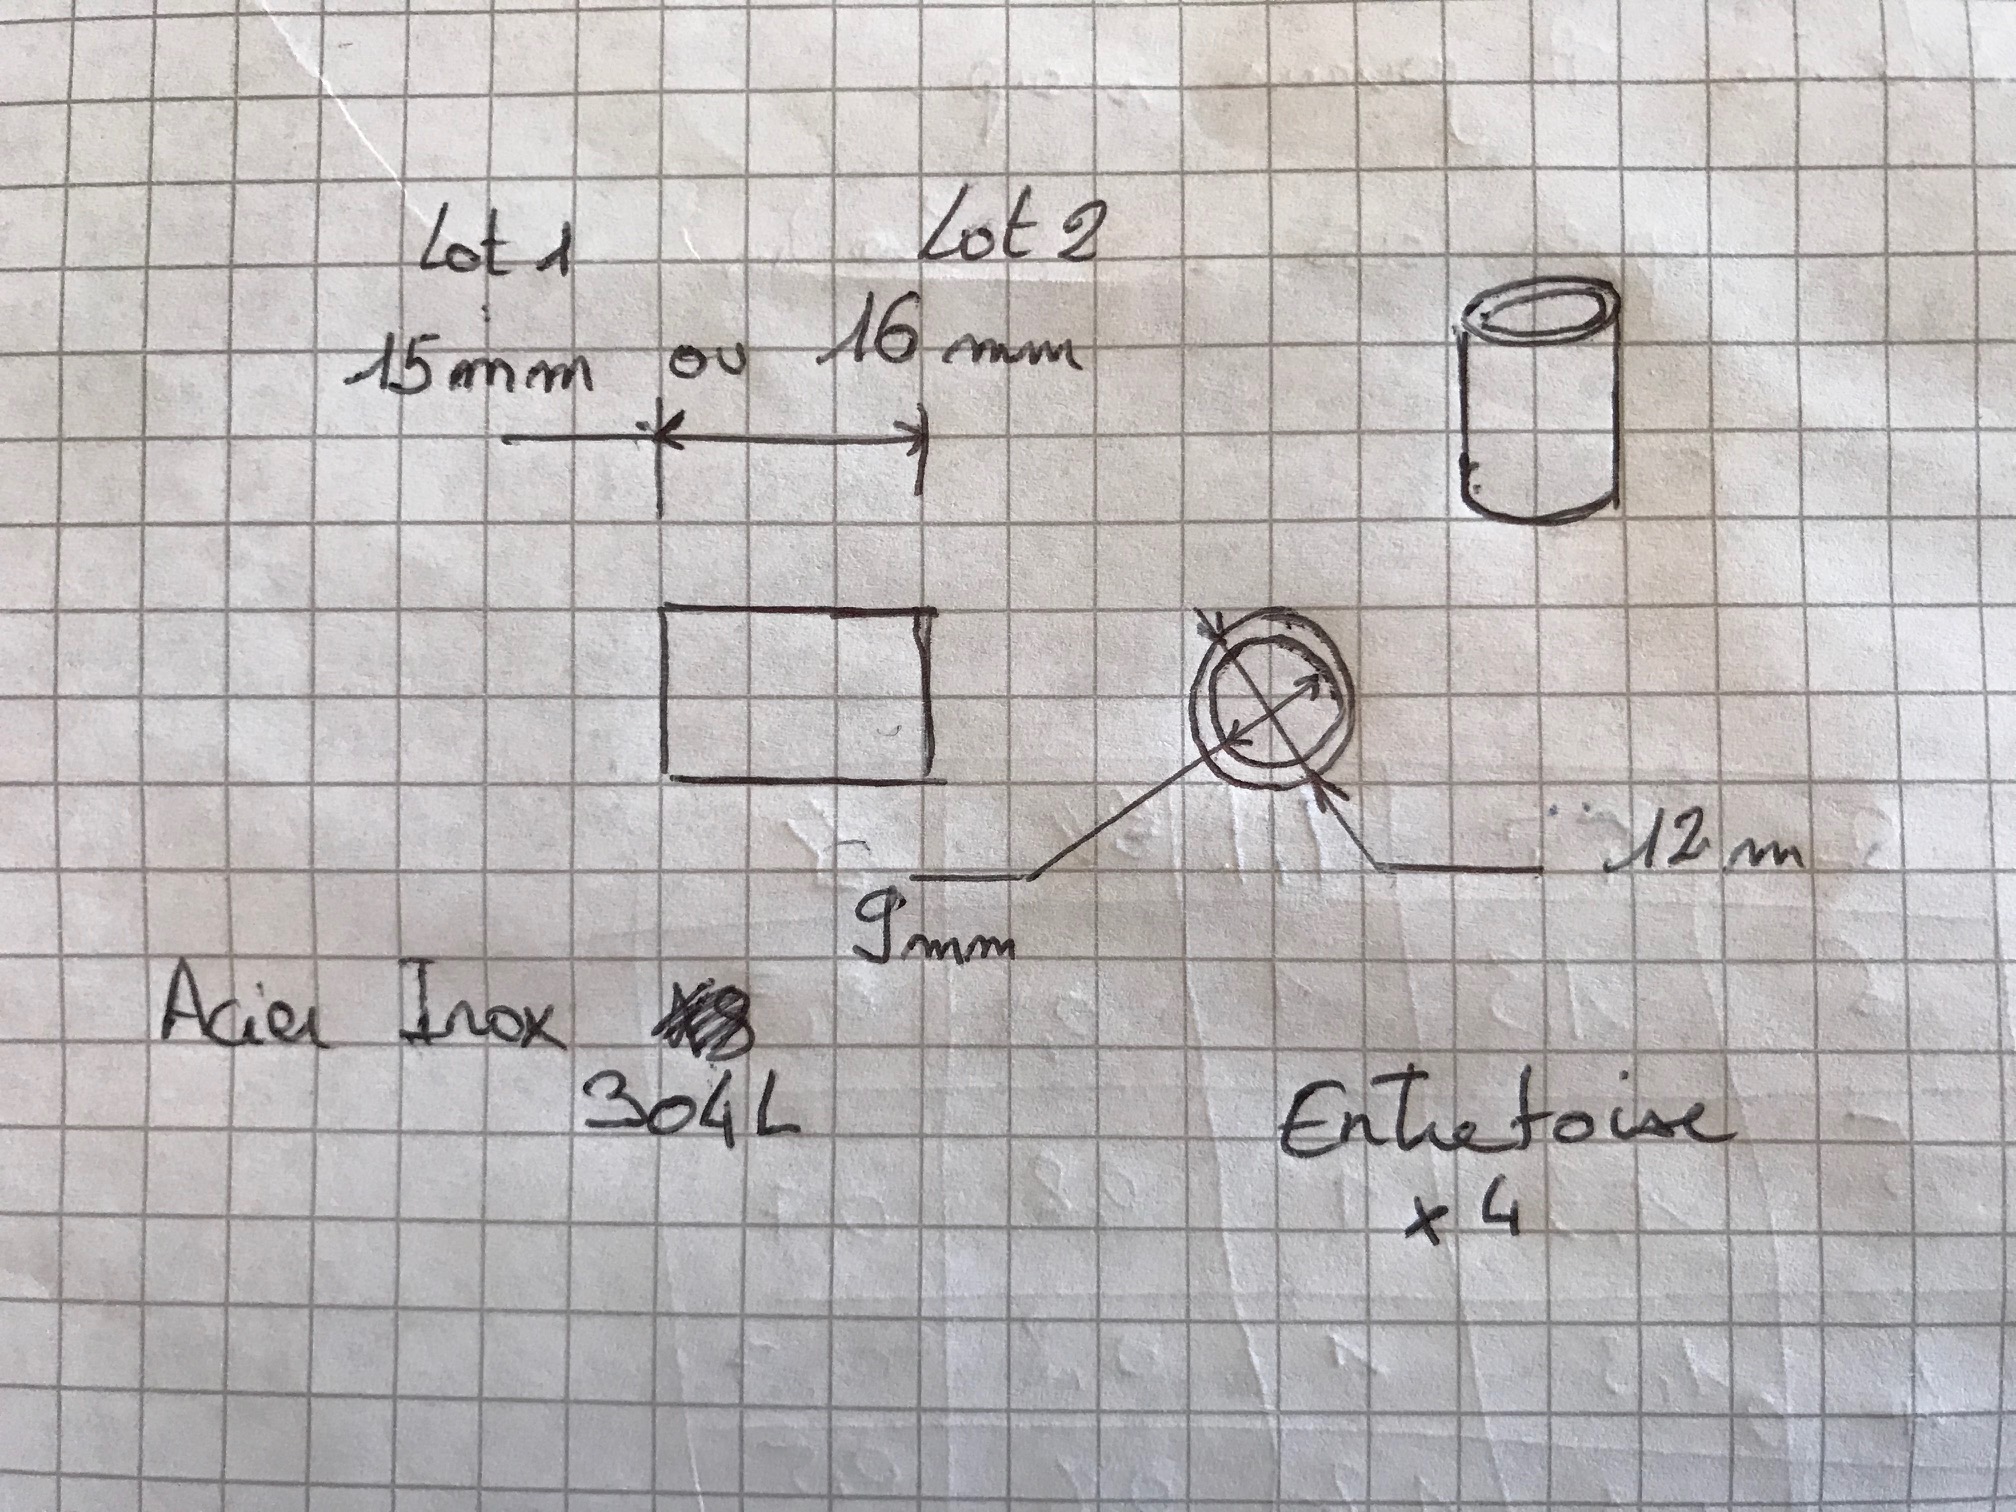 Lot 1 Lot 2
15mm ou 16 mm
12 m
9mm
Acier Inox
304L
Entretoise
x 4